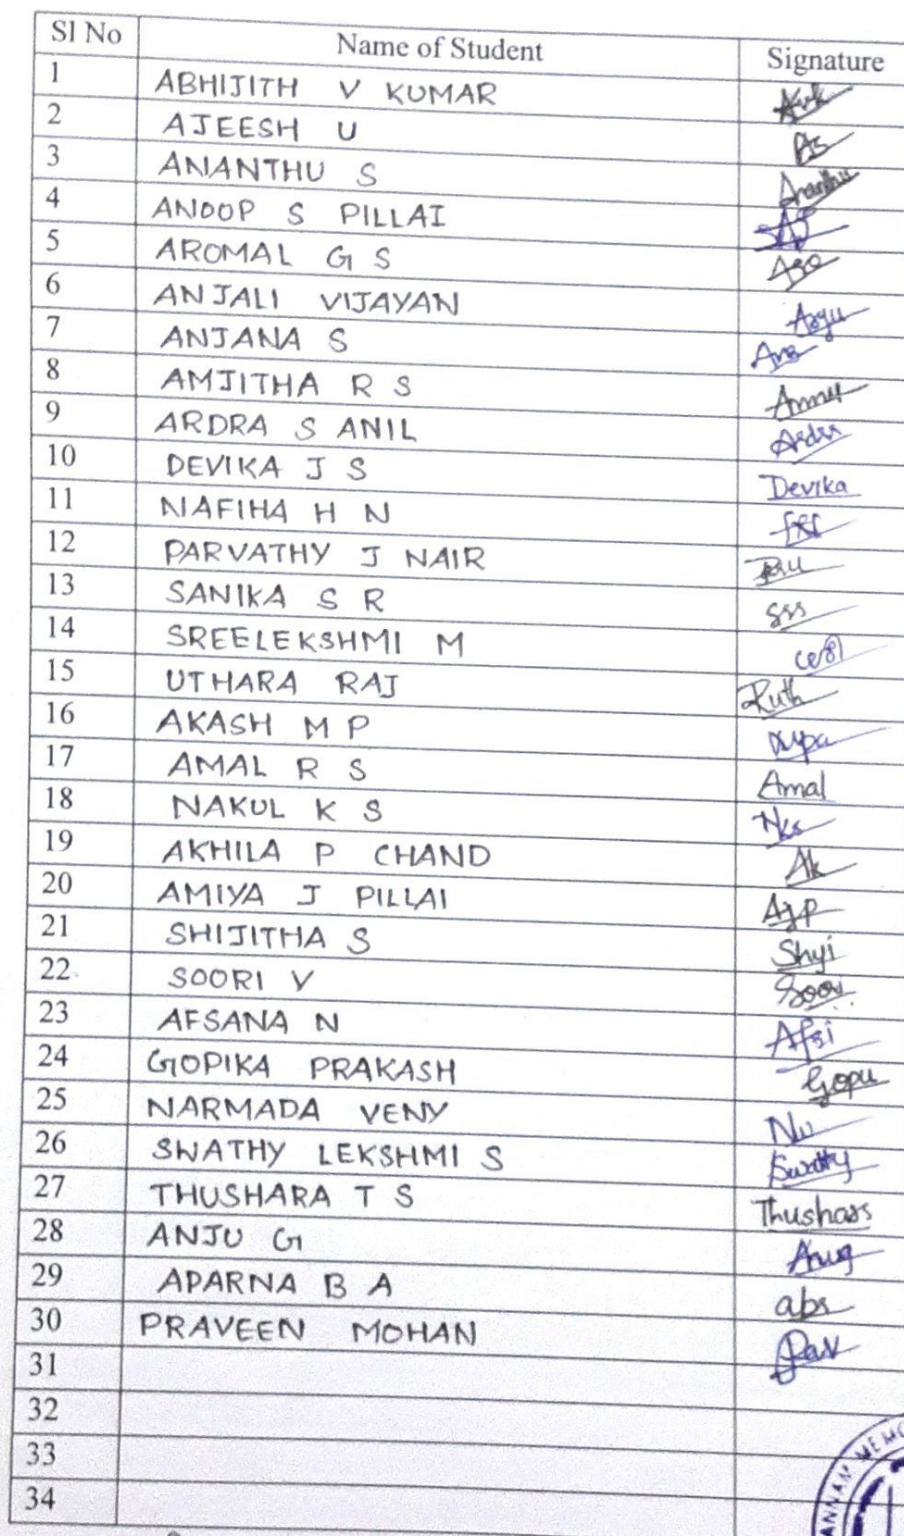 Sl No Name of Student Signature
1 ABHIJITH V KUMAR Avk
2 AJEESH U As
3 ANANTHU S Ananthu
4 ANOOP S PILLAI
5 AROMAL G S
6 ANJALI VIJAYAN
7 ANJANA S
8 AMJITHA R S Ammu
9 ARDRA S ANIL Ardra
10 DEVIKA J S Devika
11 NAFIHA H N
12 PARVATHY J NAIR
13 SANIKA S R
14 SREELEKSHMI M
15 UTHARA RAJ Ruth
16 AKASH M P
17 AMAL R S Amal
18 NAKUL K S Nks
19 AKHILA P CHAND Ak
20 AMIYA J PILLAI AJP
21 SHIJITHA S Shyi
22 SOORI V Soori
23 AFSANA N Afsi
24 GOPIKA PRAKASH Gopu
25 NARMADA VENY
26 SWATHY LEKSHMI S Swathy
27 THUSHARA T S
28 ANJU G
29 APARNA B A
30 PRAVEEN MOHAN
31
32
33
34